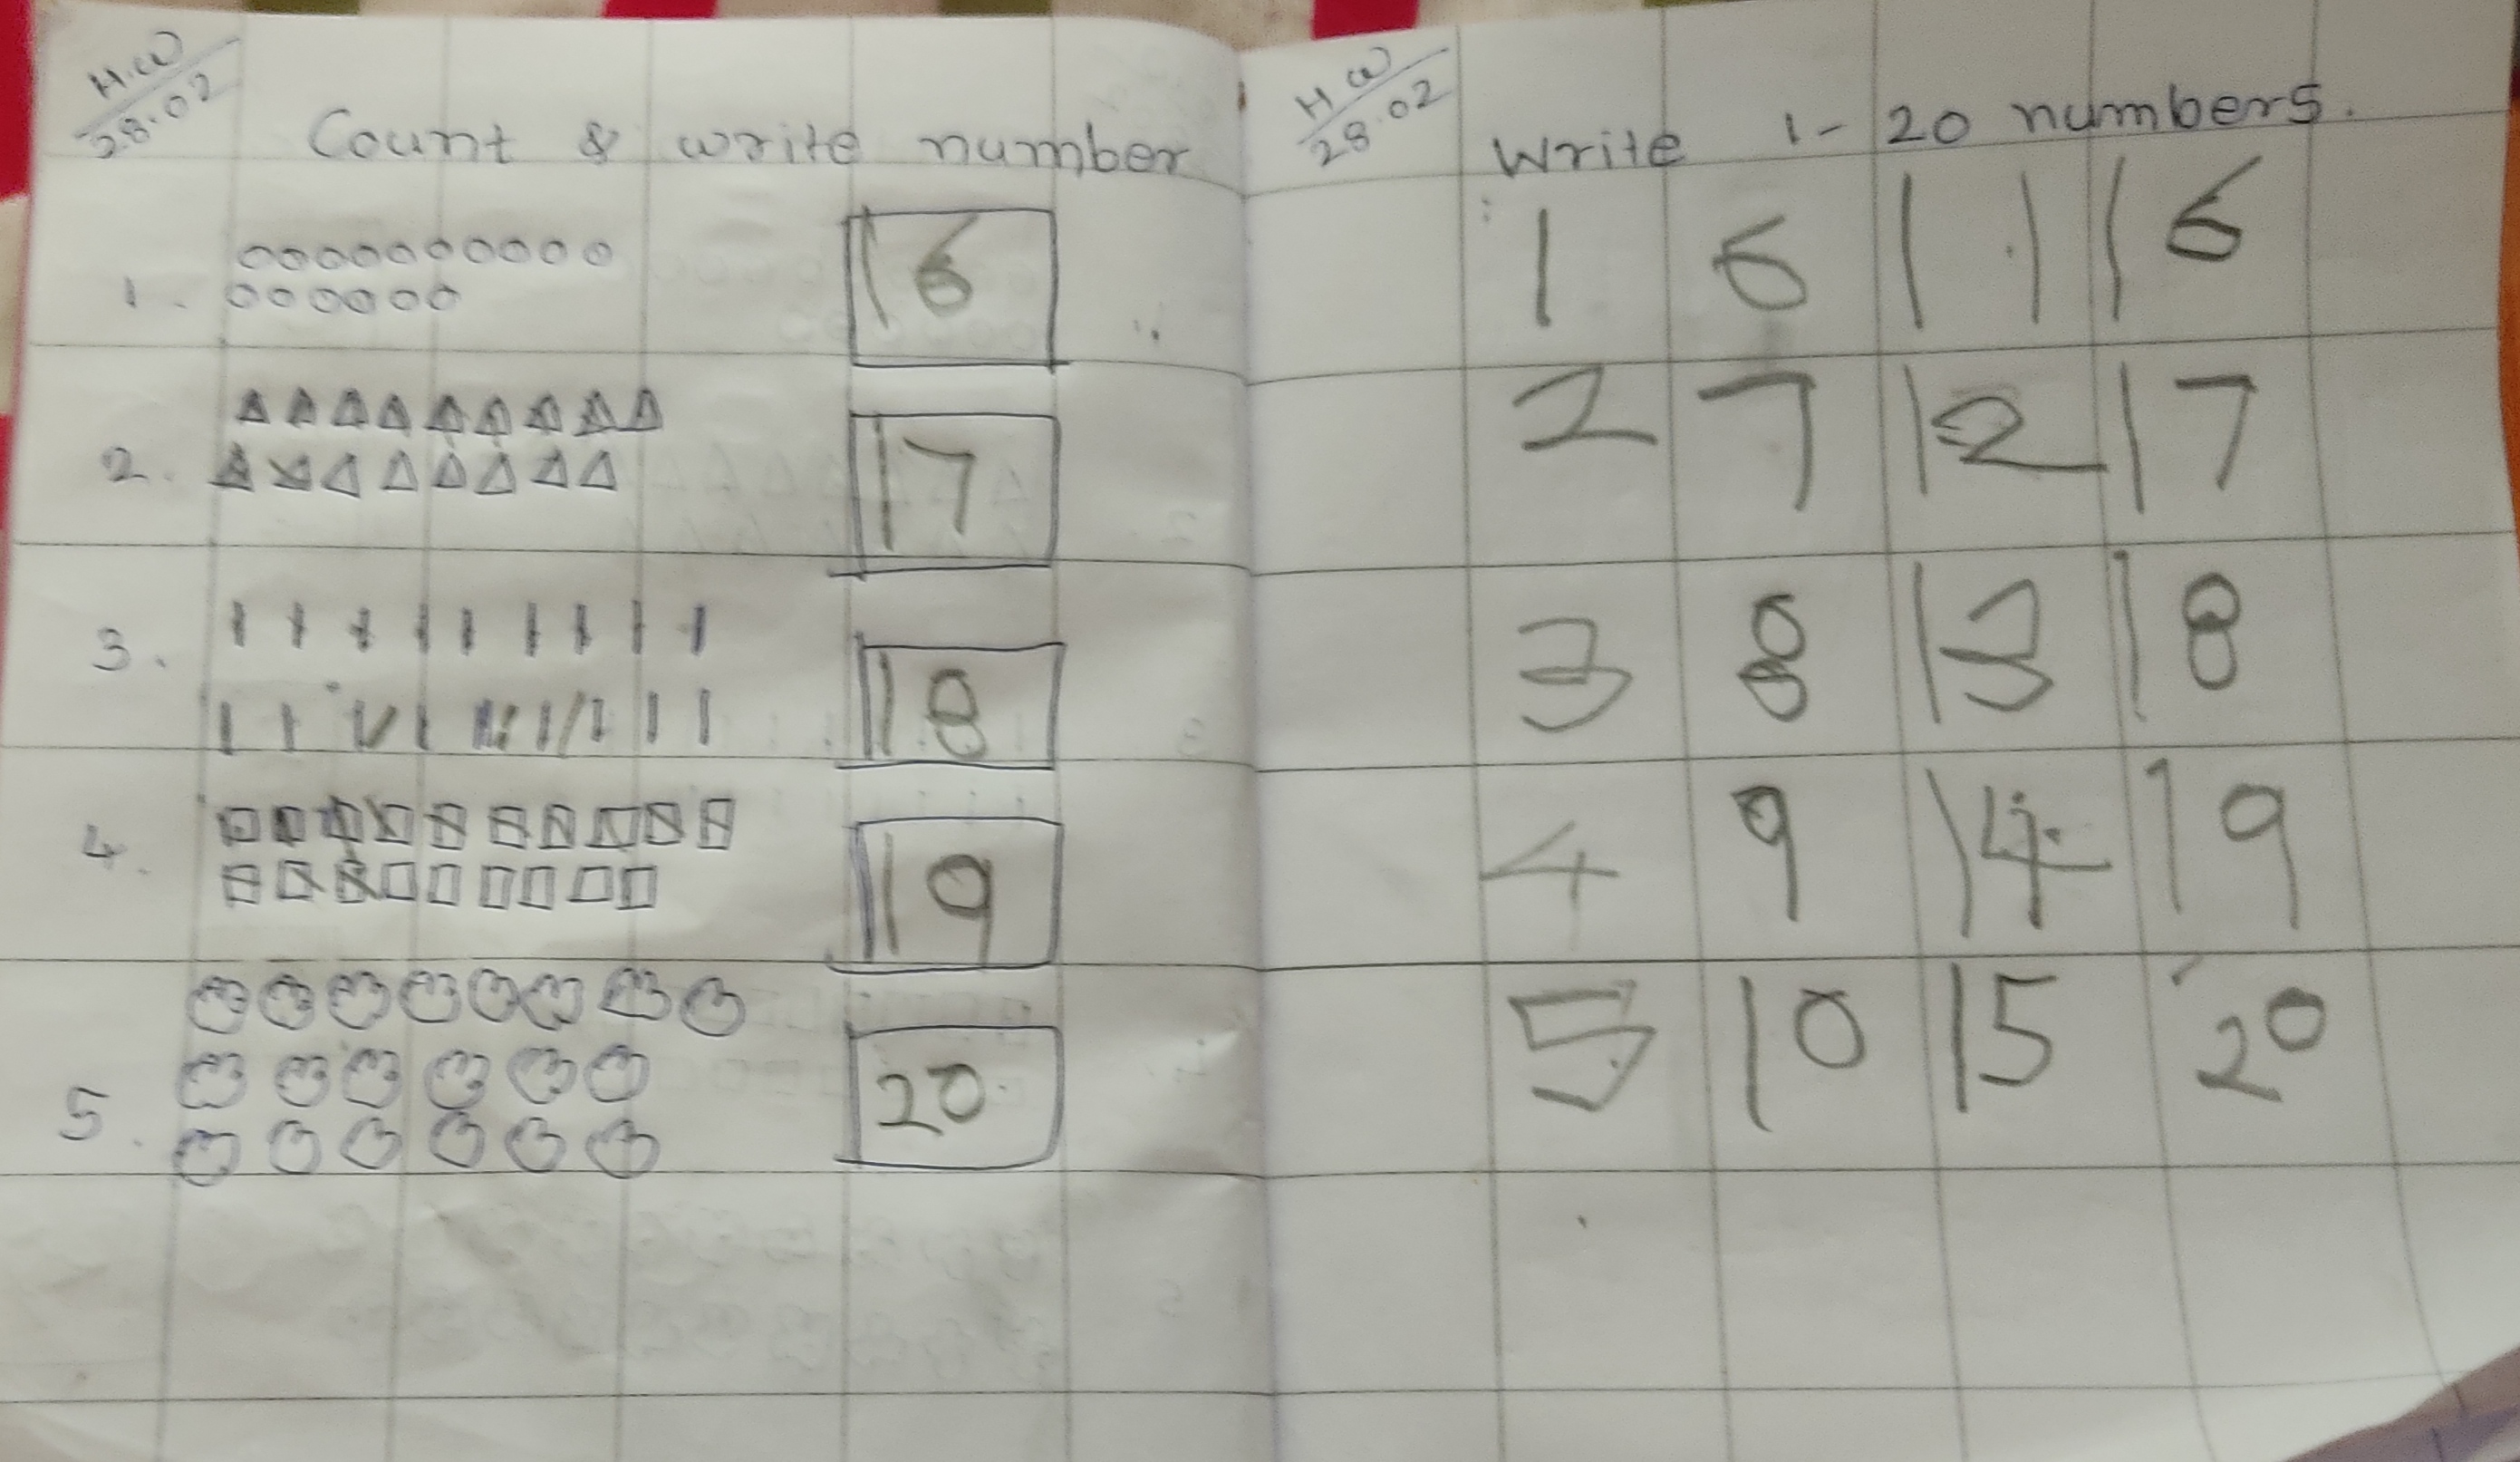 H.W
28.02
Count & write number
1. 16
2. 17
3. 18
4. 19
5. 20
H W
28.02
Write 1-20 numbers.
1 6 11 16
2 7 12 17
3 8 13 18
4 9 14 19
5 10 15 20